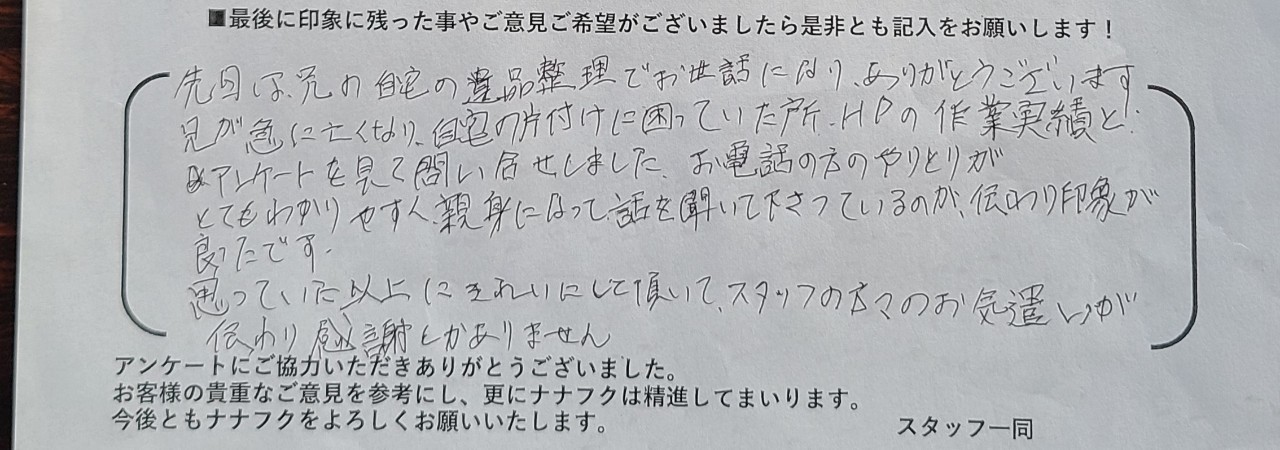 ■最後に印象に残った事やご意見ご希望がございましたら是非とも記入をお願いします！
先日は、兄の自宅の遺品整理でお世話になり、ありがとうございます
兄が急に亡くなり、自宅の片付けに困っていた所、HPの作業実績と
アンケートを見て問い合せしました、お電話の方のやりとりが
とてもわかりやすく、親身になって話を聞いて下さっているのが、伝わり印象が
良ったです。
思っていた以上にきれいにして頂いて、スタッフの方々のお気遣いが
伝わり感謝しかありません
アンケートにご協力いただきありがとうございました。
お客様の貴重なご意見を参考にし、更にナナフクは精進してまいります。
今後ともナナフクをよろしくお願いいたします。
スタッフ一同